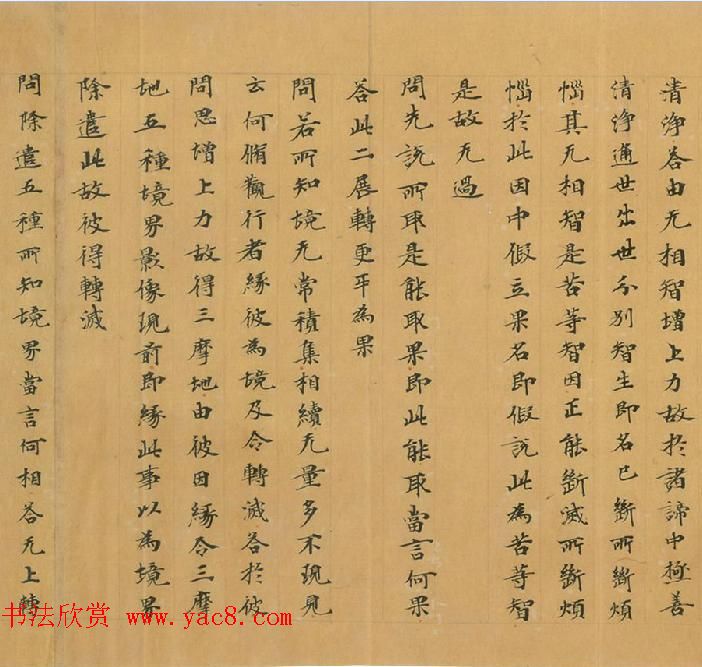 清淨荅由无相智增上力故於諸諦中極善
清淨通世出世分別智生即名已斷所斷煩
惱其无相智是苦等智因正能斷滅所斷煩
惱於此因中假立果名即假說此為苦等智
是故无過
問先說所取是能取果即此能取當言何果
荅此二展轉更互為果
問若所知境无常積集相續无量多不現見
云何脩觀行者緣彼為境及令轉滅荅於彼
問思增上力故得三摩地由彼因緣令三摩
地五種境界影像現前即緣此事以為境界
除遣此故彼得轉滅
問除遣五種所知境界當言何相荅无上轉
书法欣赏 www.yac8.com